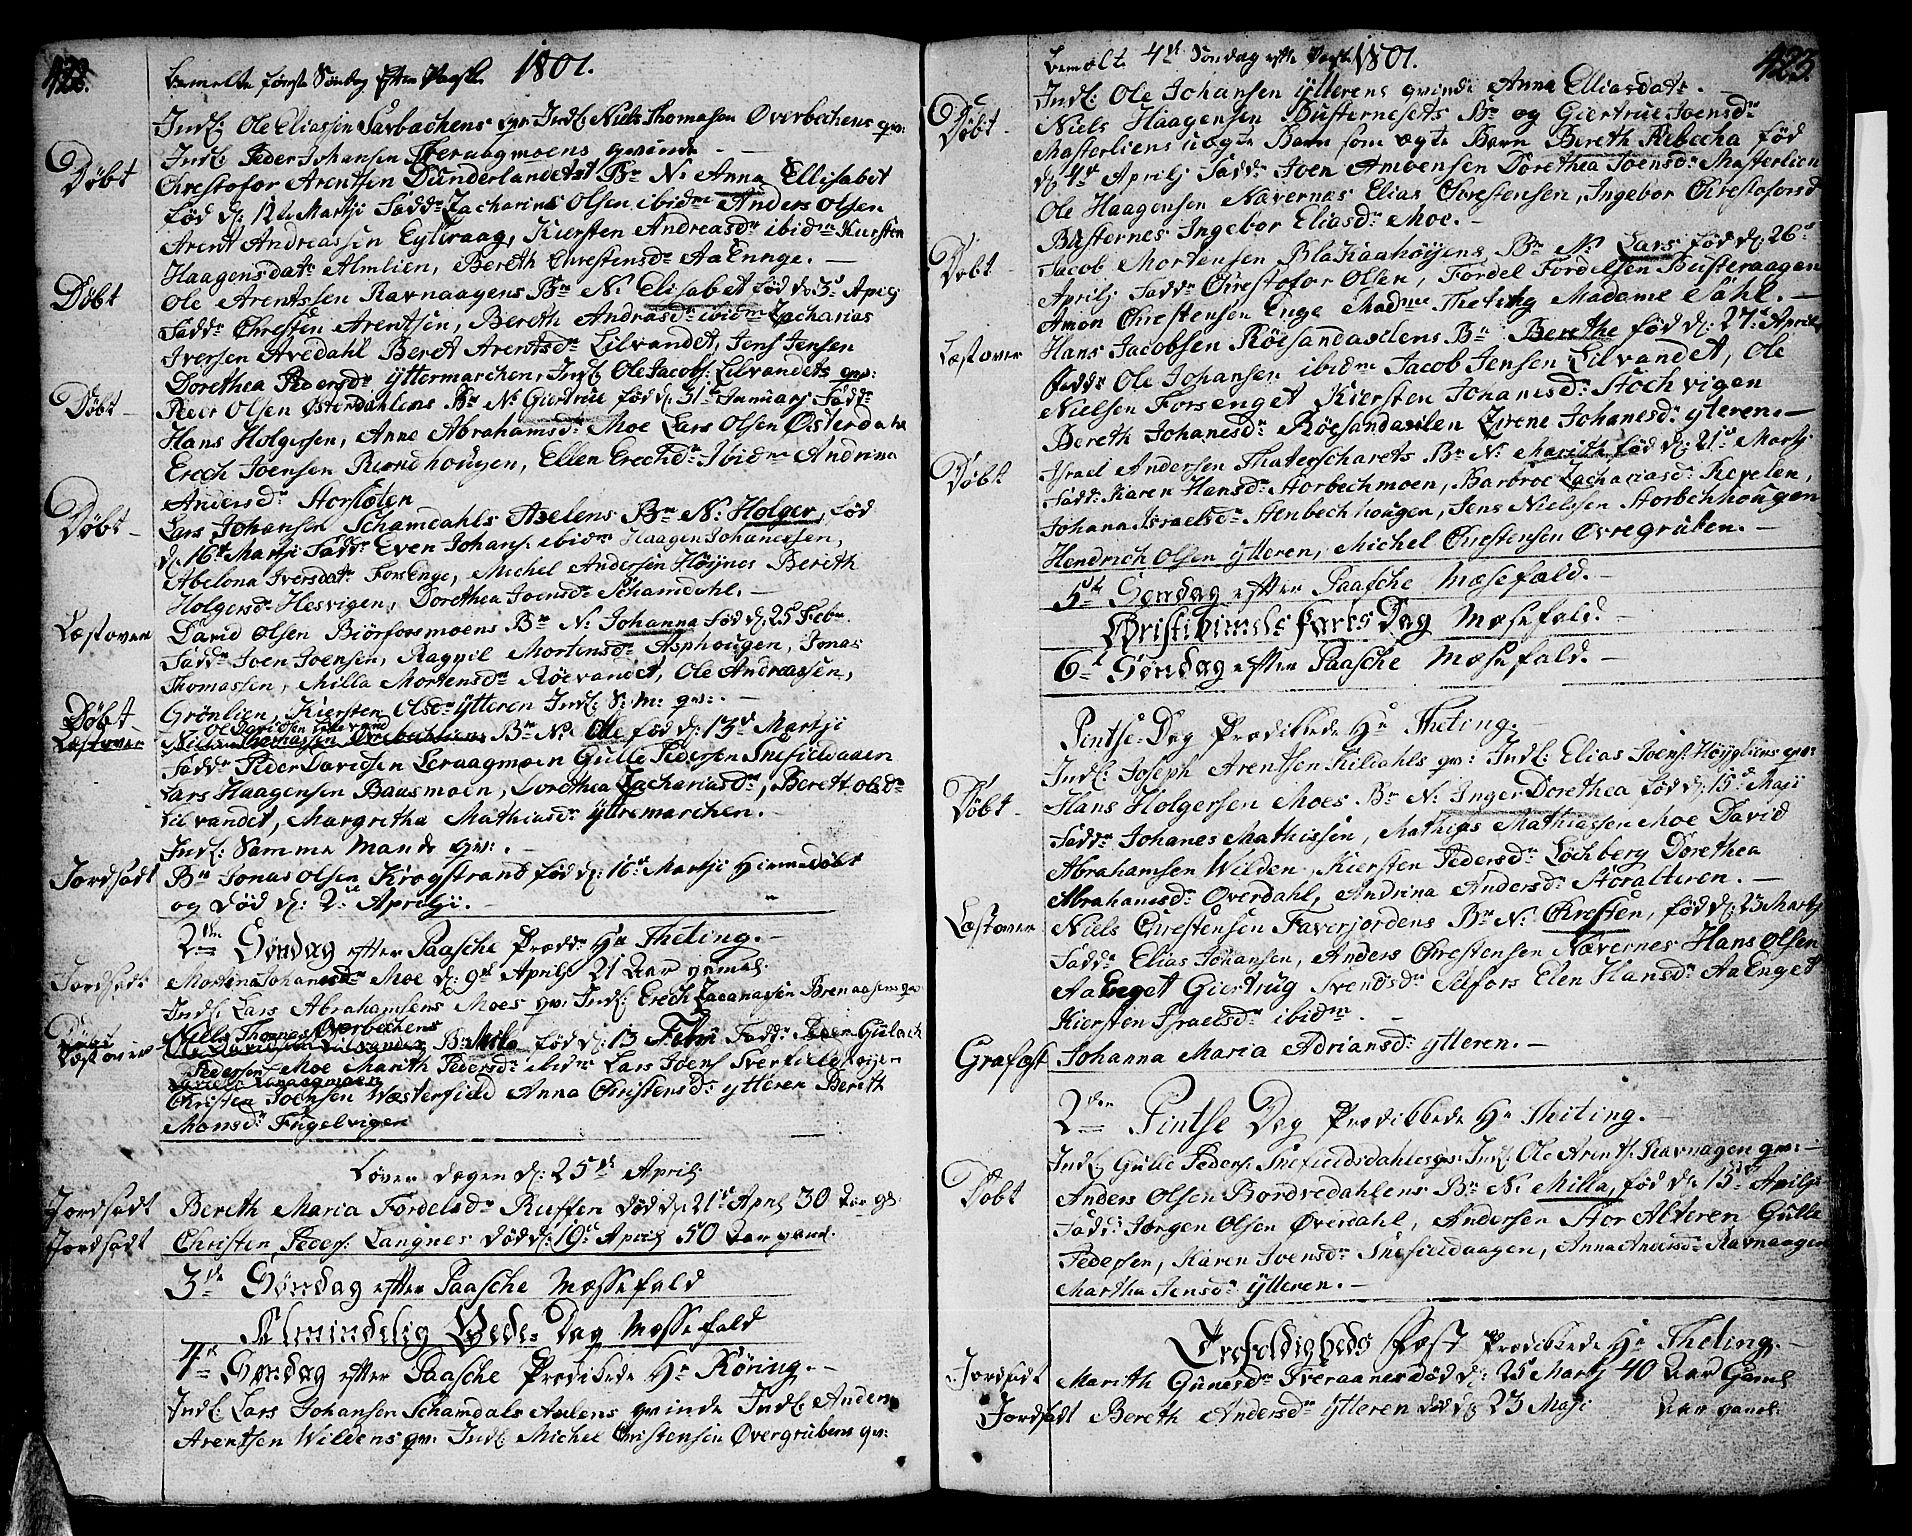 422.
1801.
bemelte første Søndag Efter Paasche
Indl: Ole Eliassen Sarbachens qv: Indl: Niels Thomasen Øverbechens qv:
Indl: Peder Johansen Sveraagmoens qvinde —
Døbt
Chrestofor Arentsen Dunderlandets Bn N: Anna Ellisabet
fød d: 12te Martji Fadd: Zacharias Olsen ibidm Anders Olsen
Arent Andreassen Eyteraag, Kiersten Andreasdr ibidm Kiersten
Haagensdatr Almlien, Bereth Chrestensdr AaEnnge. —
Døbt
Ole Arentssen Ravnaagens Bn N: Elisabet fød d: 3d Aprilj
Fadd: Chresten Arentsen, Bereth Andrasdr ibidm Zacharias
Iversen Avedahl Beret Arentsdr Lilvandet, Jens Jensen
Dorethea Pedersdr yttermarchen, Indl: Ole Jacobs: Lilvandets qv:
Døbt —
Peer Olsen Østerdahlens Bn N: Giertrue fød d: 31d Januarj Fadd:
Hans Holgersen, Anne Abrahamsdr Moe Lars Olsen Østerdahl
Erech Joensen Rundhougen, Ellen Erechdr Ibidm Andrina
Andersdr Storsloten
Døbt —
Lars Johansen Schamdahls Axelens Bn N: Holger, fød
d: 16d Martji Fadd: Even Johans: ibidm Haagen Johanessen,
Abelona Iversdatr Forsenge, Michel Andersen Høynes Bereth
Holgersdr Hesvigen, Dorethea Joensdr Schamdahl. —
Læst over
David Olsen Biörforsmoens Bn N: Johanna fød d: 25 Febr.
Fadd: Joen Joensen, Ragnil Mortensdr Asphougen, Jonas
Thomassen, Milla Mortensdr Röevandet, Ole Andreasen,
Grönlien, Kiersten Olsdr ytteren Indl: S: M: qv: —
Døbt
Læst over
Ole Davidsen Lilevand
Niels Thomassen Øverbechens Bn N: Ole fød d: 13d Martji
Fadd: Peder Davidsen Leraagmoen Gulle Pedersen Snefieldaaen
Lars Haagensen Bausmoen, Dorothea Zachariasdr, Berett Olsdr
Lilvandet, Margretha Mathiasdr yttremarchen. —
Indl: Samme Mands qv: —
Jordfadt
Bn Jonas Olsen Krogstrand fød d: 16d Martji Hiemedøbt
og død d: 2d Aprilji. —
2den Søndag efter Paasche Prædd: Hr Theting. —
Jordfadt
Mortina Johansdr Moe d: 9d Aprilj 21 Aar gamel:
Indl: Lars Abrahamsens Moes qv: Indl: Erech Zacariasen Brenaasens qv:
Døbt
Læst over
Niels Thomas: Øverbechens
Ole Davidsen Lilvandets Bn Mila fød d: 13 Febr Fadd: Peder Gulach
Pedersen Moe Marith Pedersdr ibidm Lars Joens: Sverfieldhougen
Christen Joensen Wæsterfield Anna Christensdr ytteren Bereth
Monsdr Fugelvigen
Løver dagen d: 25d April
Jordfadt
Bereth Maria Fordelsdr Russen død d: 21d Aprilj 30 Aar gl:
Jordfadt
Christen Peders: Langnes død d: 19d Aprilj 50 Aar gaml.
3de Søndag efter Paasche Mæssefald
Almindelig Bede-Dag Mæssefald
4de Søndag efter Paasche Prædikede Hr Köring. —
Indl: Lars Johansen Schamdals Axlens qvinde Indl: Anders
Arentsen Wildens qv: Indl: Michel Christensen Øvergrubens qv:
423.
bemelte 4de Søndag efter Paasche 1801.
Indl: Ole Johansen ytterens qvinde Anna Elliasdatr. —
Døbt —
Niels Haagensen Busternesets Bn og Giertrue Joensdr
Masterliens uægte Barn som ægte Barn Bereth Rebecha fød
d: 4d Aprilj Fadd: Joen Amoensen Dorethea Joensdr Masterlien
Ole Haagensen Nævernes Elias Chrestensen, Ingebor Chrestofersd:
Busternes Ingebor Eliasdr Moe. —
Døbt —
Jacob Mortensen Blakaahöyens Bn N: Lars fød d: 26d
Aprilj Fadd: Chrestofor Olsen, Fordel Fordelsen Busteraagen
Amon Chrestensen Enge Madme Theting Madame Sahl. —
Læst over
Hans Jacobsen Röesandaslens Bn Berethe fød d: 27d Aprilj
Fadd: Ole Johansen ibidm Jacob Jensen Lilvandet, Ole
Nielsen Forsenget Kiersten Johanesdr Stochvigen
Bereth Johanesdr Röesandaslen Zirene Johanesdr ytteren. —
Døbt
Israel Andersen Thaterscharets Bn N: Marith fød d: 21d Martji
Fadd: Karen Hansdr Storbechmoen, Barbroe Zachariasdr Revelen,
Johana Israelsdr Stenbechhougen, Jens Nielssen Storbechhougen
Hendrich Olsen ytteren, Michel Chrestensen Øvregruben. —
5te Søndag efter Paasche Mæsefald. —
Christi Himels farts Dag Mæsefald. —
6te Søndag efter Paasche Mæsefald. —
Pintse-Dag Prædikede Hr Theting. —
Indl: Joseph Arentsen Kildahls qv: Indl: Elias Joens: Höygliens qv:
Døbt —
Hans Holgersen Moes Bn N: Inger Dorethea fød d: 15d Maji
Fadd: Johanes Mathissen, Mathias Mathiassen Moe David
Abrahamsen Wilden, Kiersten Pedersdr Lochberg Dorethea
Abrahamsdr Øverdahl, Andrina Andersdr Storalteren. —
Læst over
Niels Chrestensen Faverjordens Bn N: Chresten, fød d: 23 Martji
Fadd: Elias Johansen, Anders Chrestensen Nævernes Hans Olsen
AaEnget Giertrug Svendsdr Selfors Elen Hansdr AaEnget
Kiersten Israelsdr ibidm. —
Grafæst
Johanna Maria Adriansdr ytteren. —
2den Pintse Dag Prædikkede Hr Theting. —
Indl: Gulle Peders: Snefieldsdahles qv: Indl: Ole Arents: Ravnagen qv: —
Døbt
Anders Olsen Bordvedahlens Bn N: Milla, fød d: 15d Aprilji
Fadd: Jørgen Olsen Øverdahl, Andersen Stor Alteren Gulle
Pedersen, Karen Joensdr Snefieldaagen, Anna Andersdr Ravnaagen
Martha Jensdr ytteren. —
Trefoldigheds Fæst Prædikkede Hr Theting. —
Jordfadt
Marith Gunersdr Sveraanes død d: 25 Martj 40 Aar Gaml
Jordfadt
Bereth Andersdr ytteren død d: 23 Maji Aar gaml.